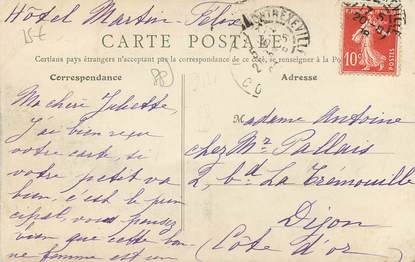 Hôtel Martin-Félix
15€
CARTE POSTALE
Certains pays étrangers n'acceptent pas la correspondance de ce côté, renseigner à la Po
Correspondance
Adresse
10c
Ma chère Juliette,
J'ai bien reçu
votre carte, si
votre petit va
bien, c'est le prin
cipal, vous pensez
bien que cette bon
ne femme est un
Madame Antoine
chez Mr Pallais
2, bd La Trémouille
Dijon
(Côte d'or)